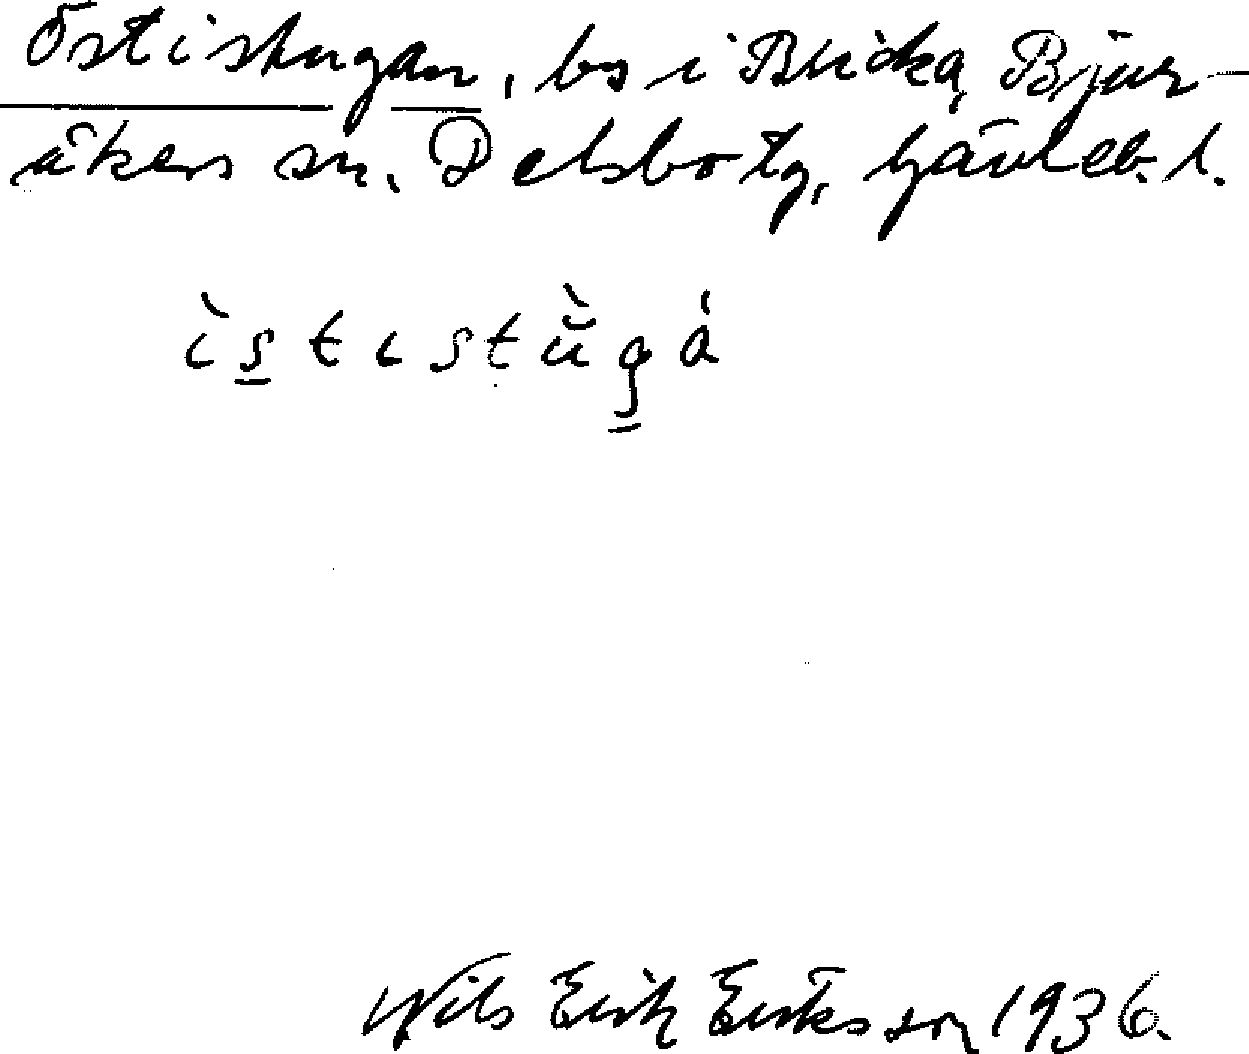 Östistugan, bs i Bricka, Bjur-
åkers sn. Delsbo tg, Gävleb. l.
ìs̱tɩstŭ̀g̱å
Nils Erik Eriksson 1936.